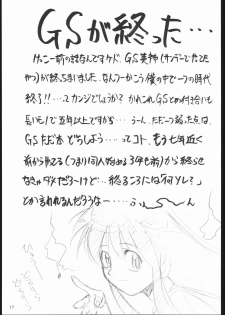 GSが終った…
けっこー前の話なんですケド、GS美神(サンデーでたてた
やつ)が終っちまいました。なんつーかこう僕の中で一つの時代
終了!!…ってカンジでしょうか? かれこれGSとの付き合いも
長いもんで五年以上ですから…うーん。ただ一つ弱った点は、
GSただ本どうしよう…ってコト、もう七年近く
前から言ってる(つまり同人始める3年も前)から終らせ
なきゃダメだろーけど…「終るころには何ソレ?」
とか言われるんだろうなー…ふぅ〜ん